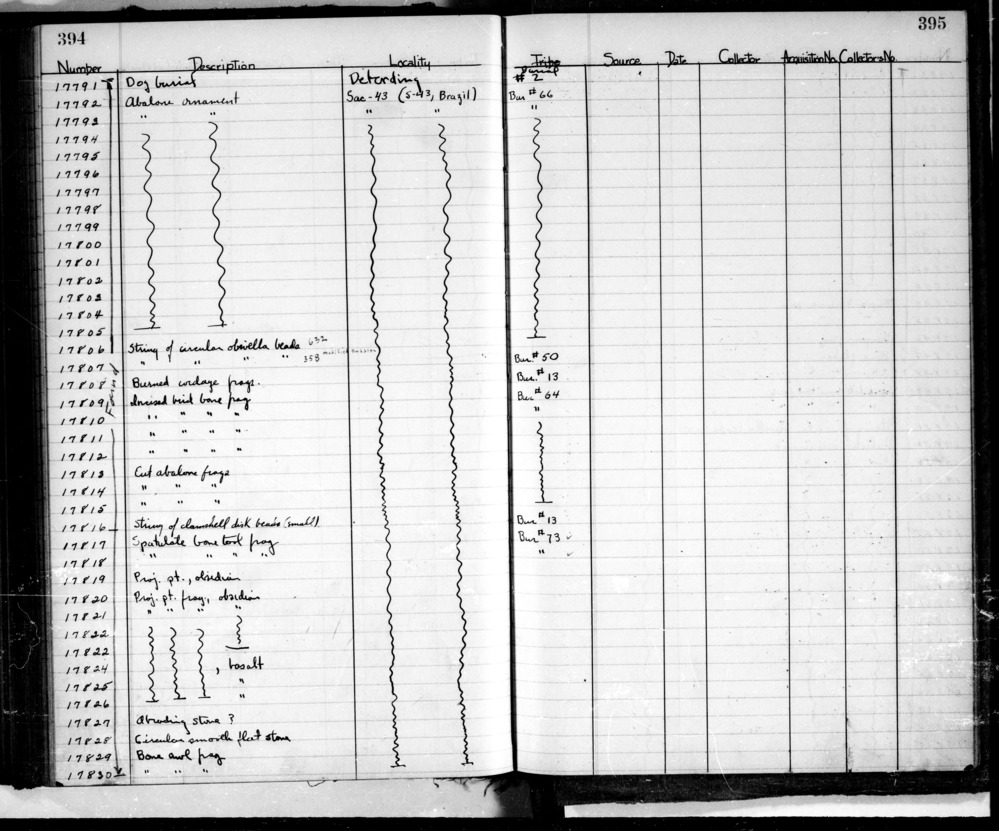 394
395
Number Description Locality Tribe Source Date Collector Acquisition No. Collector's No.
Burial
17791 Dog burial Deterding # 2
17792 Abalone ornament Sac-43 (S-43, Brazil) Bur # 66
17793 " " " " "
17794
17795
17796
17797
17798
17799
17800
17801
17802
17803
17804
17805
17806 String of circular olivella beads 632 Bur. # 50
17807 " " " " 358
17808 Burned cordage frags. Bur. # 13
17809 Incised bird bone frag Bur # 64
17810 " " " " "
17811 " " " "
17812 " " " "
17813 Cut abalone frags
17814 " " "
17815 " " "
17816 String of clamshell disk beads (small) Bur # 13
17817 Spatulate bone tool frag Bur # 73
17818 " " " " "
17819 Proj. pt., obsidian
17820 Proj. pt. frag, obsidian
17821 " " " "
17822
17822
17824 , basalt
17825 "
17826 "
17827 Abrading stone ?
17828 Circular smooth flat stone
17829 Bone awl frag
17830 " " "